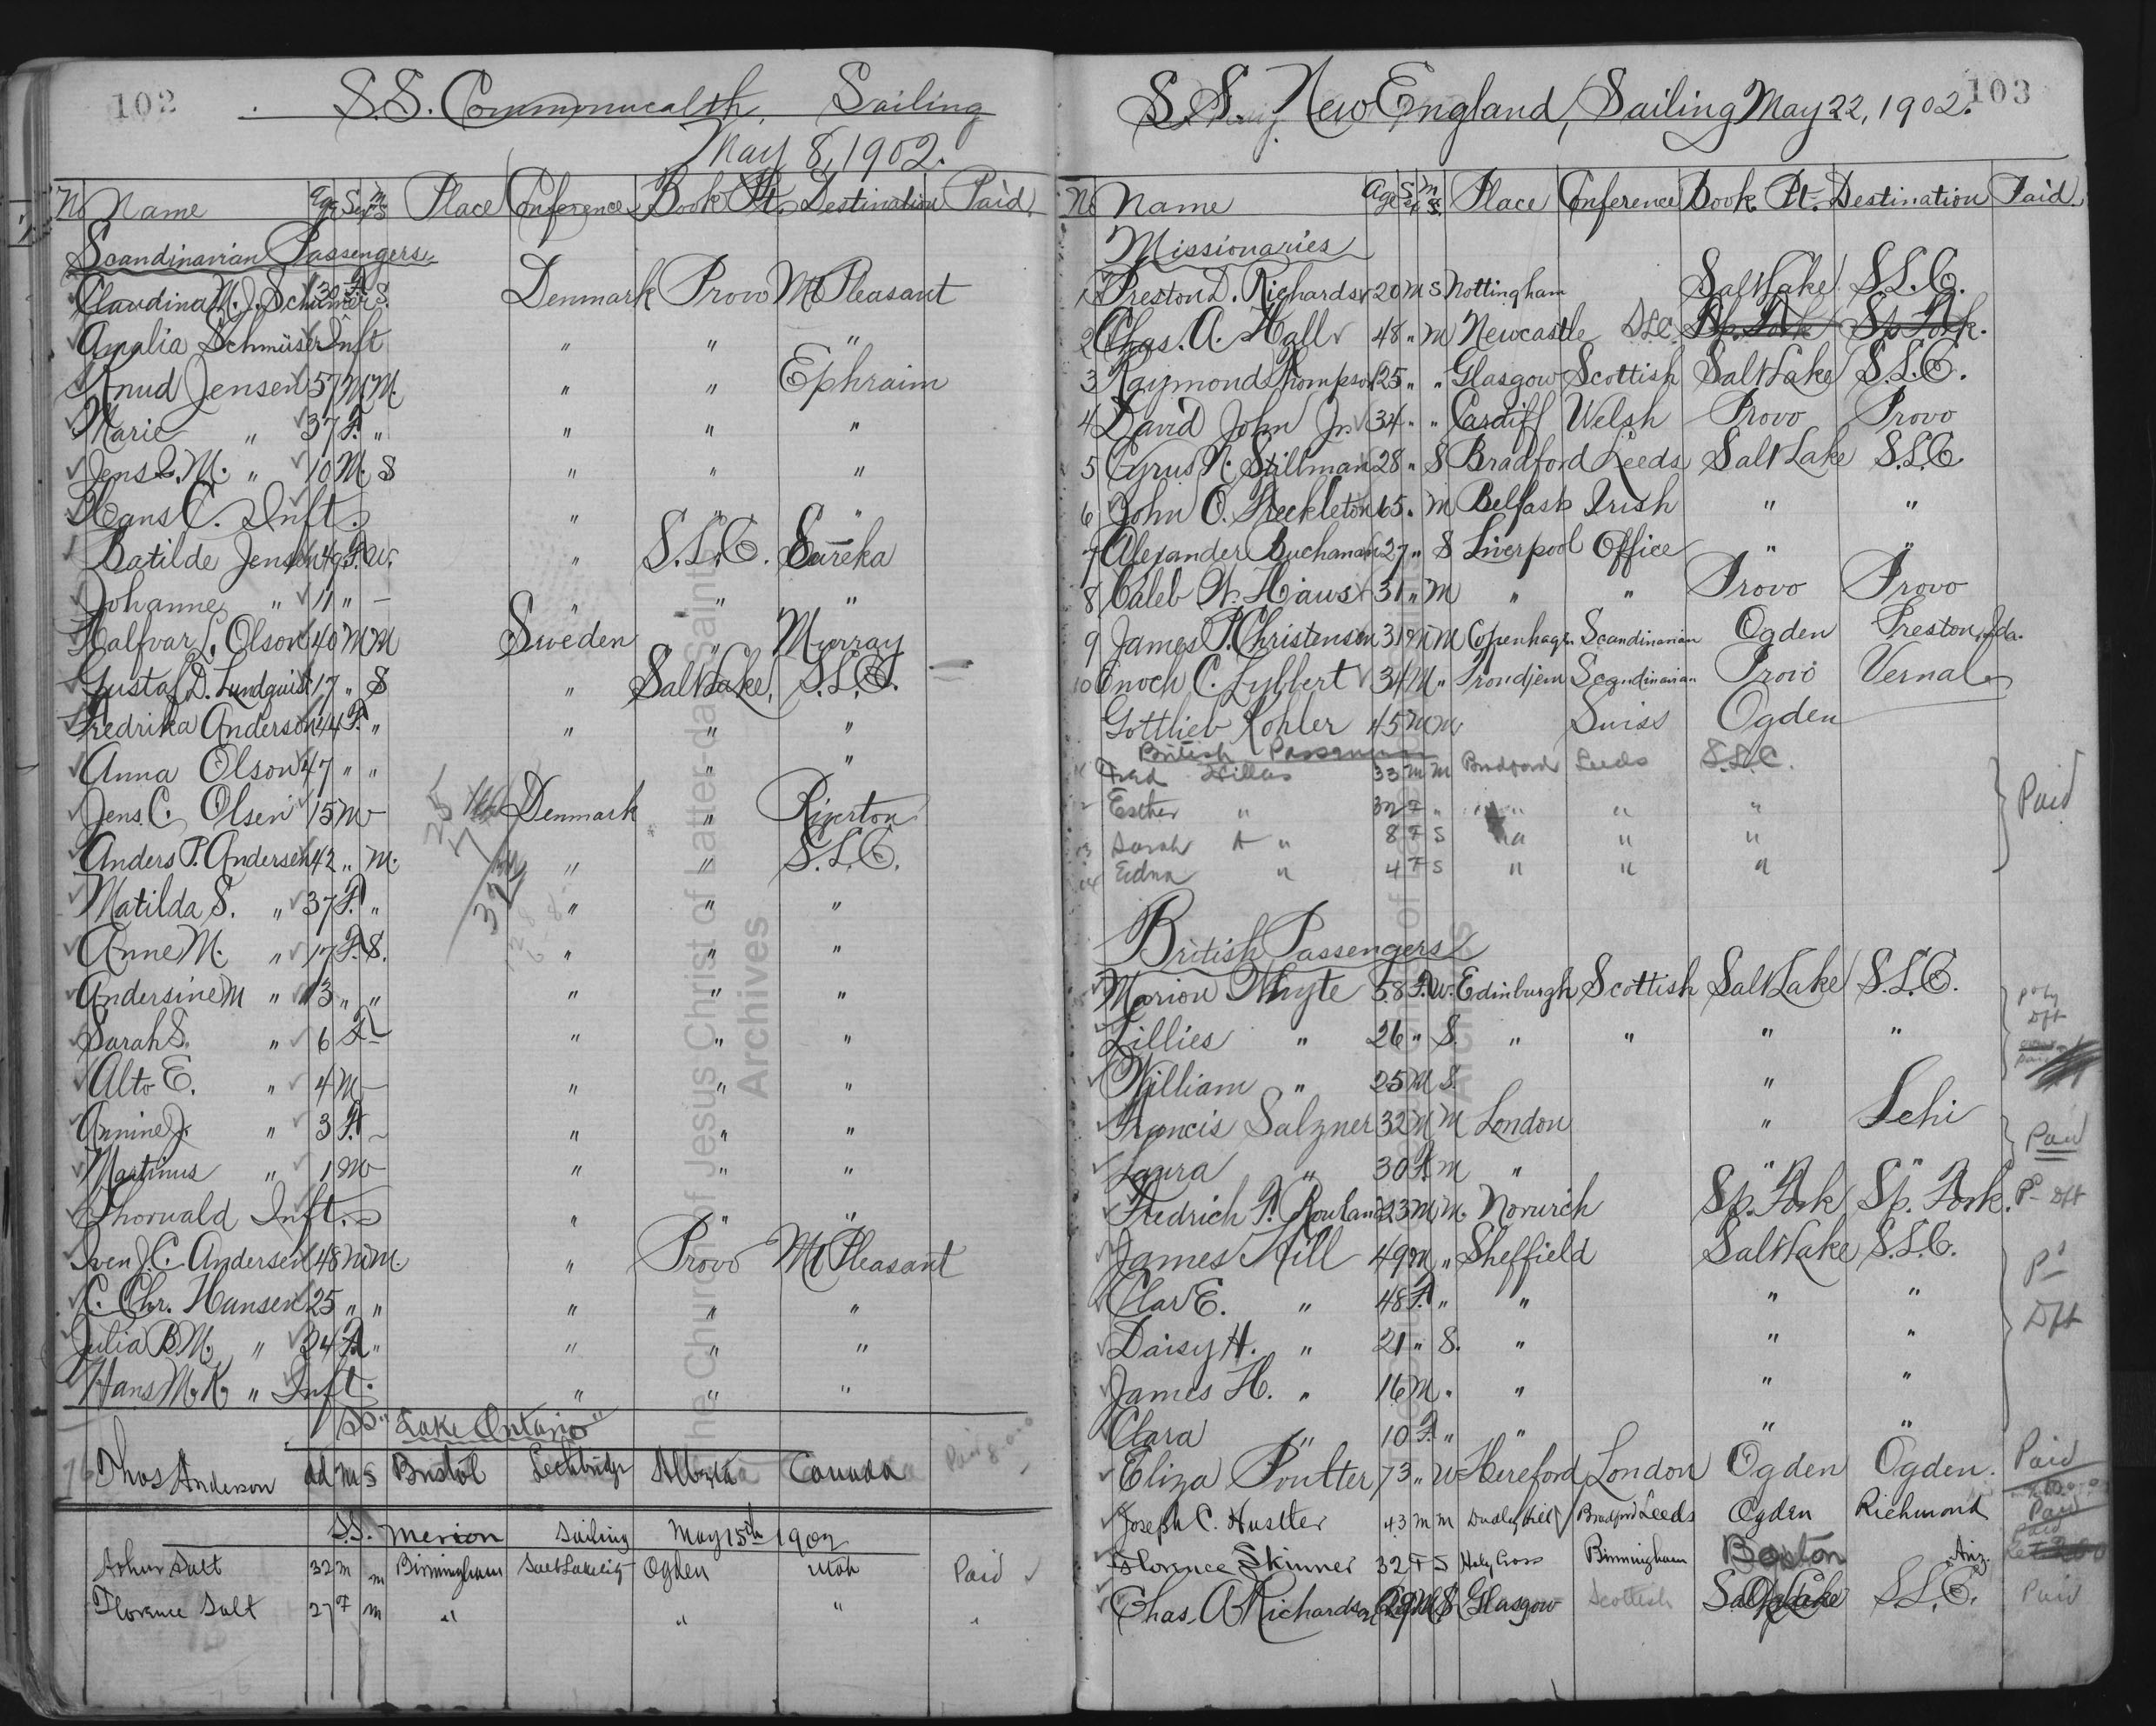 102
S.S. Commonwealth, Sailing
May 8, 1902.
No Name Age Sex M S Place Conference Book Pt. Destination Paid.
Scandinavian Passengers.
Claudina M. J. Schmüser 30 F. S. Denmark Provo Mt Pleasant
Amalia Schmüser Inft " " "
Knud Jensen 57 M M. " " Ephraim
Marie " 37 F. " " " "
Jens M. " 10 M. S " " "
Hans C. Inft. " " "
Batilde Jensen 49 F. W. " S.L.C. Eureka
Johanne " 11 " – " " "
Halfvar L. Olson 40 M M Sweden " Murray
Gustaf D. Lundquist 17 " S " Salt Lake, S.L.C.
Fredrika Anderson 44 F. " " " "
Anna Olson 47 " " " "
Jens C. Olsen 15 M – Denmark " Riverton
Anders P. Andersen 42 " M. " " S.L.C.
Matilda S. " 37 F. " " " "
Anne M. " 17 F. S. " " "
Andersine M " 13 " " " " "
Sarah S. " 6 F – " " "
Alto E. " 4 M – " " "
Annine J. " 3 F. – " " "
Martinus " 1 M – " " "
Thorvald Inft. " " "
Sven J. C. Andersen 48 M M. " Provo Mt Pleasant
C. Chr. Hansen 25 " " " " "
Julia B. M. " 24 F. " " " "
Hans M. K. " Inft. " " "
SS. "Lake Ontario"
Thos Anderson ad M S Bristol Lethbridge Alberta Canada
S.S. Merion Sailing May 15th 1902
Arthur Salt 32 m m Birmingham Salt Lake City Ogden Utah Paid
Florence Salt 27 F m " " " "
103
S.S. New England, Sailing May 22, 1902.
No Name Age Sex M S. Place Conference Book Pt. Destination Paid.
Missionaries
1 Preston D. Richards 20 M S Nottingham Salt Lake S.L.C.
2 Chas. A. Hall 48 " M Newcastle S.L.C. Sp. Fork Sp. Fork.
3 Raymond Thompson 25 " " Glasgow Scottish Salt Lake S.L.C.
4 David John Jr. 34 " " Cardiff Welsh Provo Provo
5 Cyrus N. Stillman 28 " S Bradford Leeds Salt Lake S.L.C.
6 John O. Freckleton 65 " M Belfast Irish " "
7 Alexander Buchanan 27 " S Liverpool Office " "
8 Caleb W. Haws 31 " M " " Provo Provo
9 James P. Christensen 31 M M Copenhagen Scandinavian Ogden Preston, Ida.
10 Enoch C. Lybbert 34 M " Trondjem Scandinavian Provo Vernal
Gottlieb Kohler 45 M M Swiss Ogden
British Passengers
11 Fred Hillas 33 M M Bradford Leeds S.L.C. Paid
12 Esther " 32 F " " " "
13 Sarah A " 8 F S " " "
14 Edna " 4 F S " " "
British Passengers
Marion Whyte 58 F. W. Edinburgh Scottish Salt Lake S.L.C.
Lillies " 26 " S. " " " "
William " 25 M S. "
Francis Salzner 32 M M London " Lehi Paid
Laura " 30 F. M " " "
Fredrich F. Rowland 23 M M. Norwich Sp. Fork Sp. Fork. Pd Dft
James Hill 49 M " Sheffield Salt Lake S.L.C. Pd
Clar E. " 48 F. " " " " Dft
Daisy H. " 21 " S. " " "
James H. " 16 M " " " "
Clara " 10 F. " " " "
Eliza Poulter 73 " W Hereford London Ogden Ogden. Paid
Joseph C. Hustler 43 m m Dudley Hill Bradford Leeds Ogden Richmond Paid
Florence Skinner 32 F S Holy Cross Birmingham Boston Paid
Chas. A. Richardson 29 M S Glasgow Scottish Salt Lake S.L.C. Ariz. Paid
The Church of Jesus Christ of Latter-day Saints
Archives